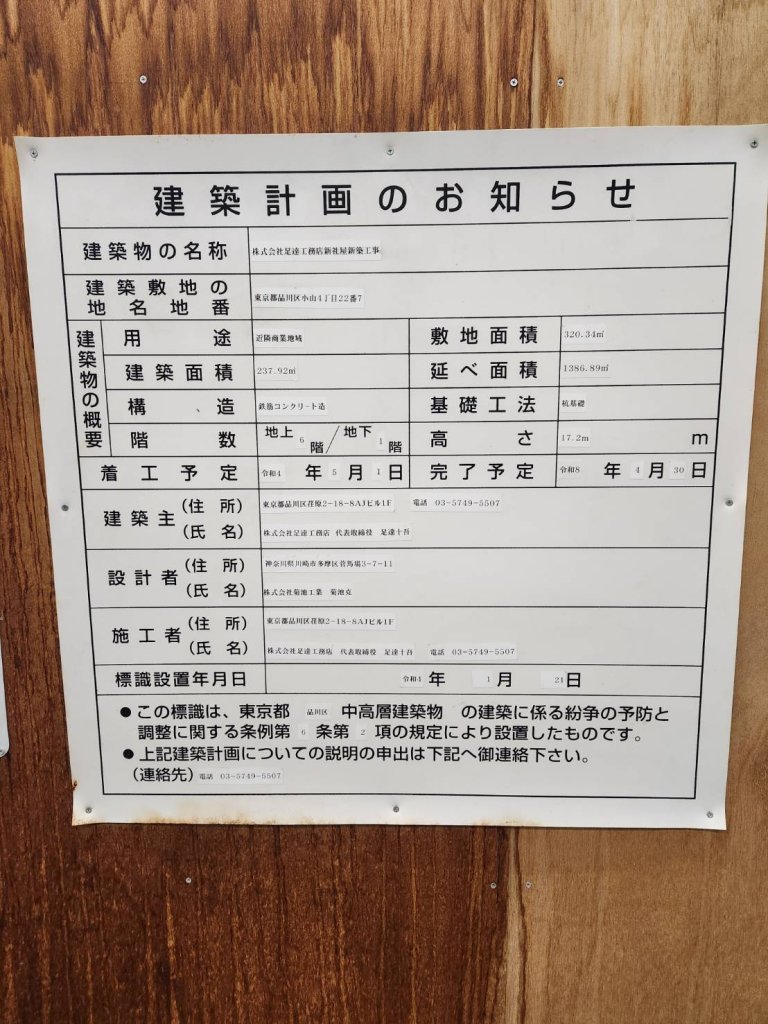 建築計画のお知らせ
建築物の名称 株式会社足達工務店新社屋新築工事
建築敷地の地名地番 東京都品川区小山4丁目22番7
建築物の概要
用途 近隣商業地域 敷地面積 320.34㎡
建築面積 237.92㎡ 延べ面積 1386.89㎡
構造 鉄筋コンクリート造 基礎工法 杭基礎
階数 地上6階/地下1階 高さ 17.2m m
着工予定 令和4年5月1日 完了予定 令和8年4月30日
建築主 (住所) 東京都品川区荏原2-18-8AJビル1F 電話 03-5749-5507
(氏名) 株式会社足達工務店 代表取締役 足達十吾
設計者 (住所) 神奈川県川崎市多摩区菅馬場3-7-11
(氏名) 株式会社菊池工業 菊池克
施工者 (住所) 東京都品川区荏原2-18-8AJビル1F
(氏名) 株式会社足達工務店 代表取締役 足達十吾 電話 03-5749-5507
標識設置年月日 令和4年1月21日
●この標識は、東京都品川区中高層建築物の建築に係る紛争の予防と
調整に関する条例第6条第2項の規定により設置したものです。
●上記建築計画についての説明の申出は下記へ御連絡下さい。
(連絡先) 電話 03-5749-5507